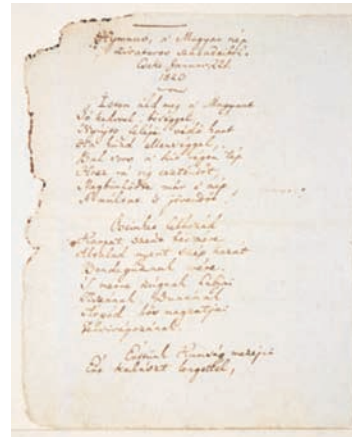 Hymnus, a' Magyar nép
zivataros századaiból.
Cseke, Januar. 22d.
1823
Isten áldd meg a' Magyart
Jó kedvel, bőséggel,
Nyújts feléje védő kart
Ha küzd ellenséggel;
Bal sors a' kit régen tép
Hozz rá víg esztendőt,
Megbűnhődte már e' nép
A' multat 's jövendőt
Őseinket felhozád
Kárpát szent bérczére
Általad nyert szép hazát
Bendegúznak vére
'S merre zúgnak habjai
Tiszának, Dunának
Árpád hős magzatjai
Felvirágozának.
Értünk Kunság mezején
Ért kalászt lengettél,